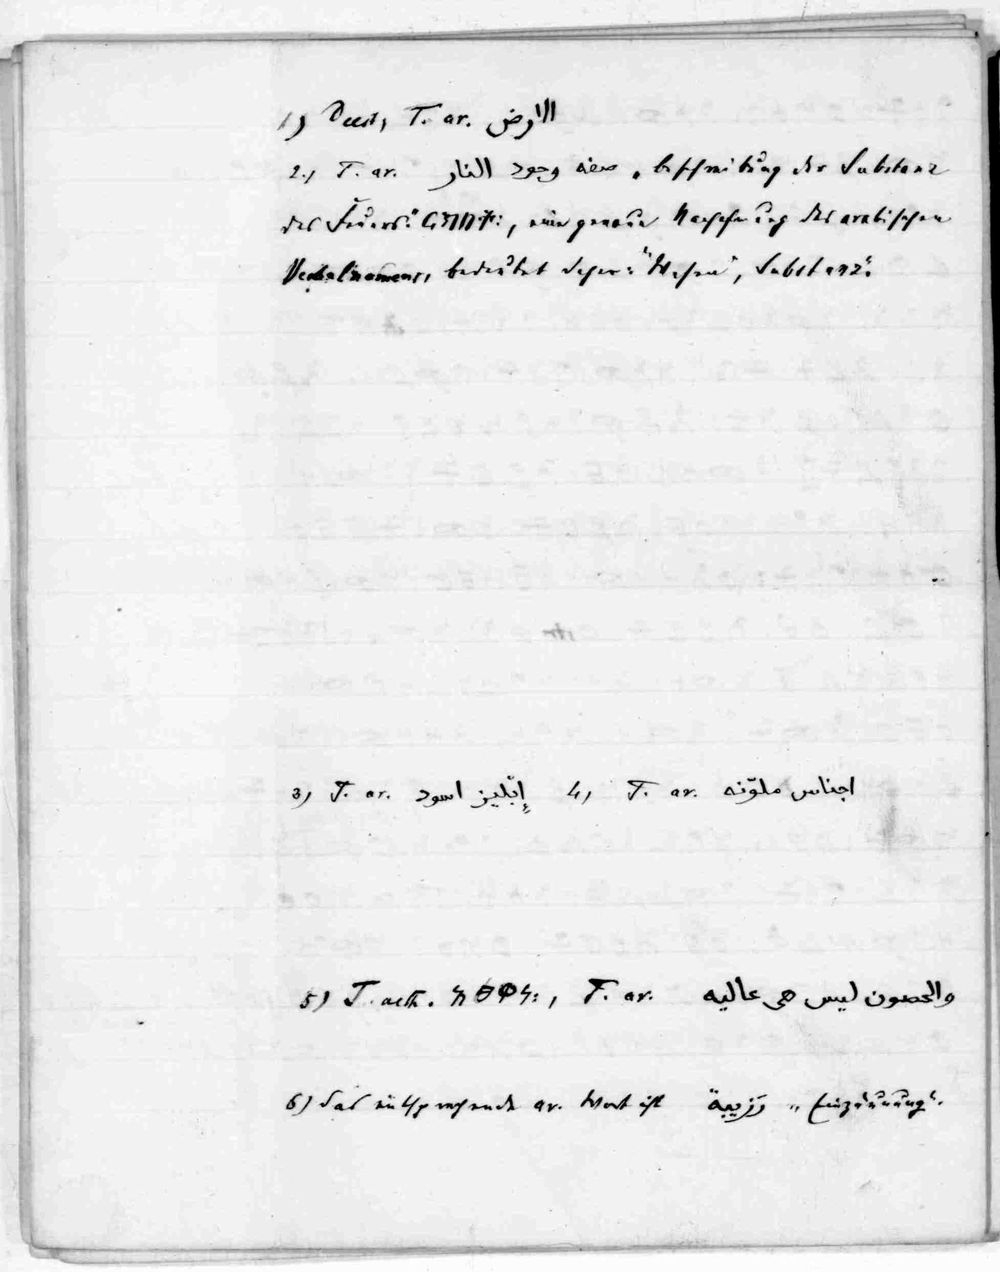 1) Deest, T. ar. الارض
2.) T. ar. صفه وجود النار „Beschreibung der Substanz
des Feuers“. , eine genaue Nachahmung des arabischen
Verbalnomens, bedeutet daher: „Wesen“, Substanz“.
3) T. ar. إبّليز اسود 4) T. ar. اجناس ملوّنه
5) T. aeth. , T. ar. والحصون ليس هى عاليه
6) Das entsprechende ar. Wort ist „Einzäunung“.